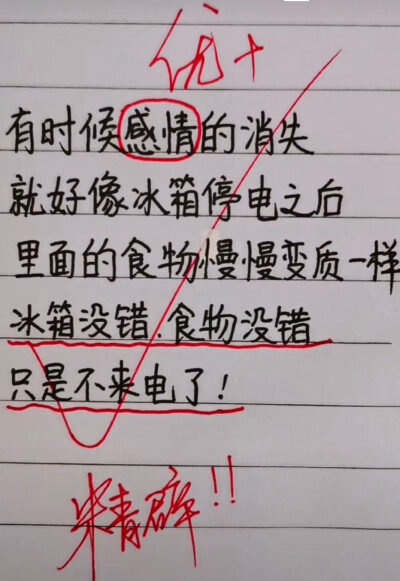 优+
有时候感情的消失
就好像冰箱停电之后
里面的食物慢慢变质一样
冰箱没错.食物没错
只是不来电了！
!!